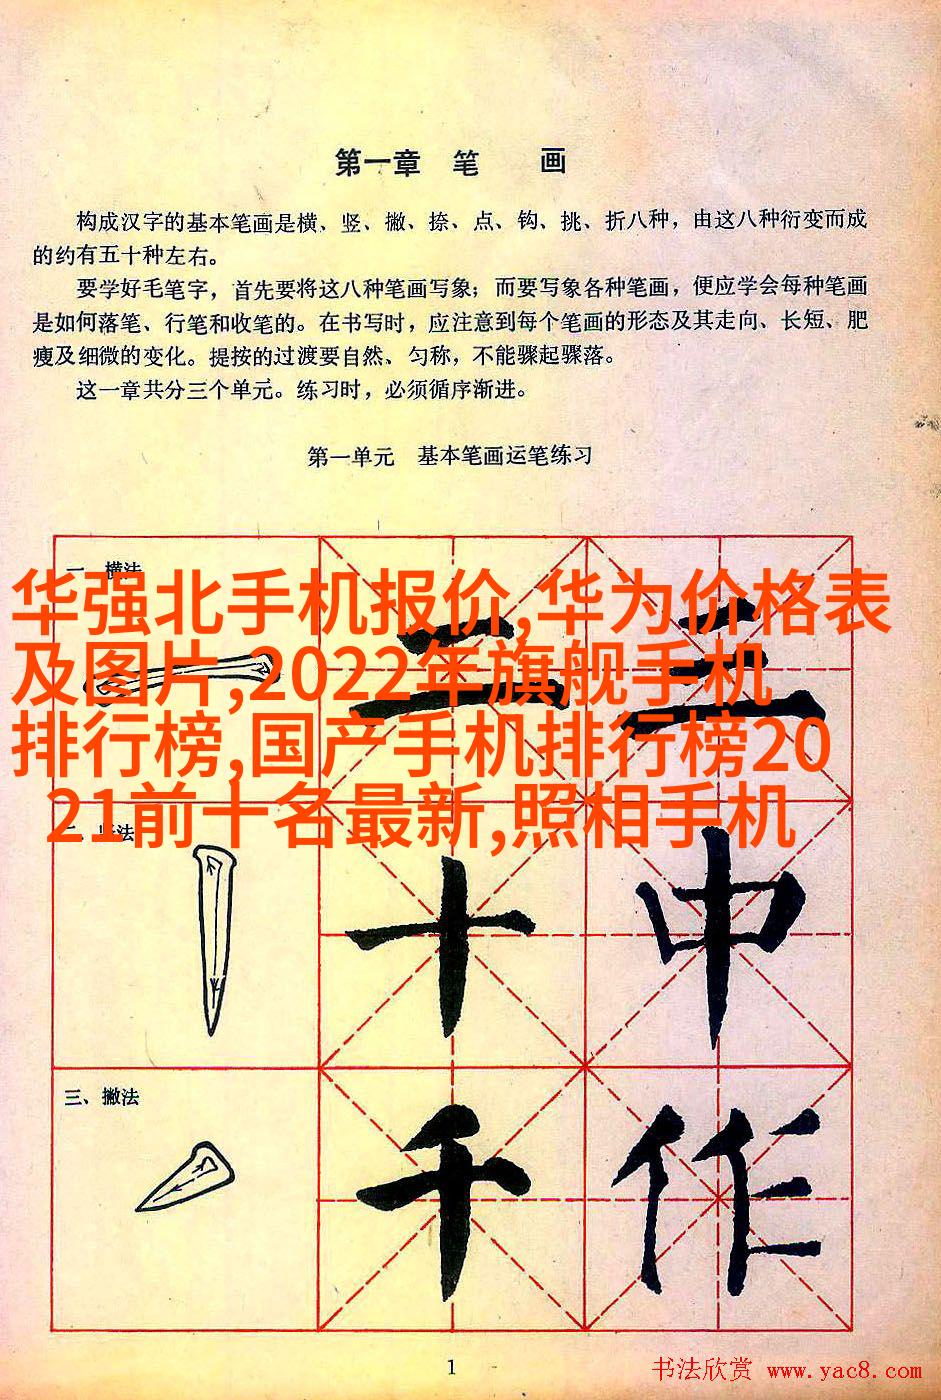 第一章 笔 画
构成汉字的基本笔画是横、竖、撇、捺、点、钩、挑、折八种，由这八种衍变而成
的约有五十种左右。
要学好毛笔字，首先要将这八种笔画写象；而要写象各种笔画，便应学会每种笔画
是如何落笔、行笔和收笔的。在书写时，应注意到每个笔画的形态及其走向、长短、肥
瘦及细微的变化。提按的过渡要自然、匀称，不能骤起骤落。
这一章共分三个单元。练习时，必须循序渐进。
第一单元 基本笔画运笔练习
一、横法
华强北手机报价,华为价格表
及图片,2022年旗舰手机
排行榜,国产手机排行榜20
21前十名最新,照相手机
三 三
二、竖法
十 中
三、撇法
千 作
1
书法欣赏 www.yac8.com